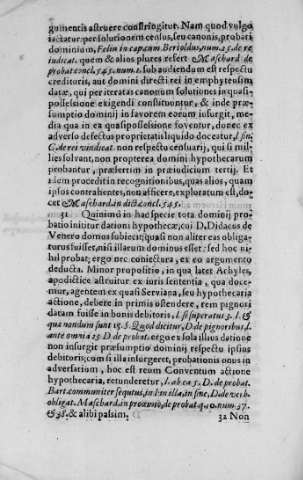 gumentis astruere constringitur. Nam quod vulgo
iactatur: per solutionem census, seu canonis, probari
dominium, Felin in cap. cum Berioldus, num. 25. de re
iudicat. quem & alios plures refert Maschard. de
probat concl. 545. num. 1. sub audiendum est respectu
creditoris, aut domini directi rei in emphyteusim
datæ, qui per iteratas canonum solutiones in quasi-
possessione exigendi constituuntur, & inde præ-
sumptio dominij in favorem eorum insurgit, me-
dia qua in ea quasipossessione foventur, donec ex
adverso defectus proprietatis liquido doceatur, l. sin.
C. de rei vindicat. non respectu censuarij, qui si mil-
lies solvant, non propterea domini hypothecarum
probantur, præsertim in præiudicium tertij. Et
idem procedit in recognitionibus, quas alios, quam
ipsos contrahentes, non afficere, exploratum est, do-
cet Maschard in dict. concl. 545.
31 Quinimò in hac specie tota dominij pro-
batio initur dationi hypothecæ, cui D. Didacus de
Venero domus subiecit; quasi non aliter eas obliga-
turus fuisset, nisi illarum dominus esset: sed hoc ni-
hil probat; ergo nec coniectura, ex eo argumento
deducta. Minor propositio, in qua latet Achyles,
apodictice astruitur ex iuris sententia, qua doce-
mur, agentem ex quasi Serviana, seu hypothecaria
actione, debere in primis ostendere, rem pignori
datam fuisse in bonis debitoris, l. si superatus 3. l.
qua nondum sunt 15. §. Quod dicitur, D. de pignoribus l.
ante omnia 23 D. de probat. ergo ex sola illius datione
non insurgit præsumptio dominij respectu ipsius
debitoris; com si illa insurgeret, probationis onus in
adversarium, hoc est reum Conventum actione
hypothecaria, retunderetur, l. ab ea 5. D. de probat.
Bart. communiter sequutus, in l. in illa, in fine, D. de verb.
obligat. Maschard. in proœmio, de probat. q. 10. num. 37.
38. & alibi passim.
32 Non